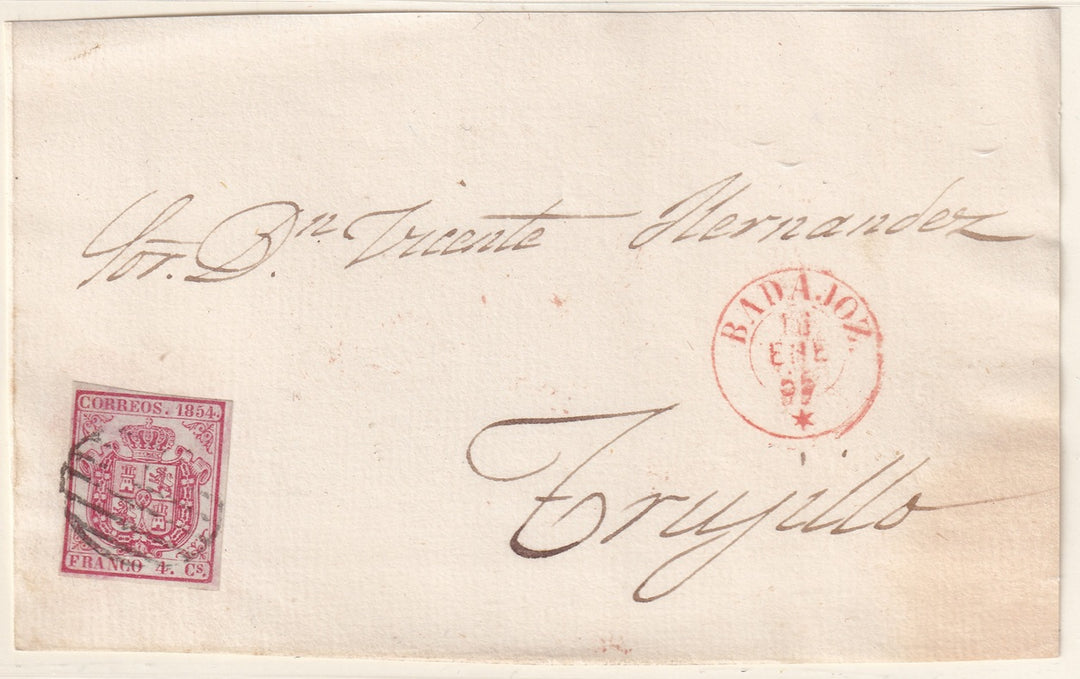 Sor. Dn. Vicente Hernandez
BADAJOZ
16
ENE
Trujillo
CORREOS. 1854.
FRANCO 4. Cs.